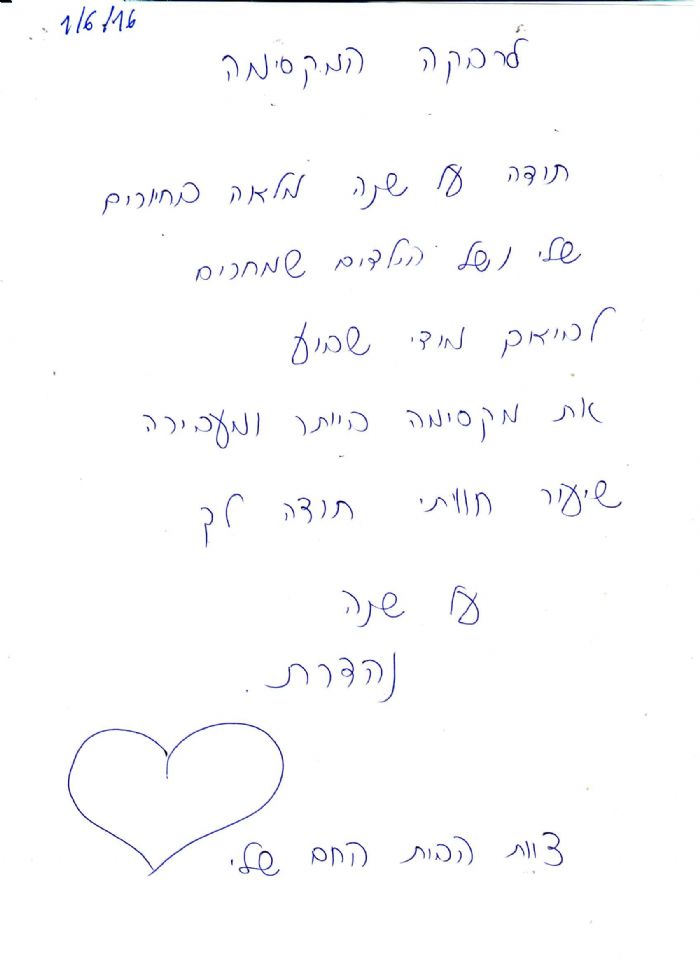 1/6/16
לרבקה המקסימה
תודה על שנה מלאה בחיוכים
שלי ושל הילדים שמחכים
לבואך מידי שבוע
את מקסימה ביותר ומעבירה
שיעור חוויתי תודה לך
על שנה
נהדרת.
צוות הבית החם שלי